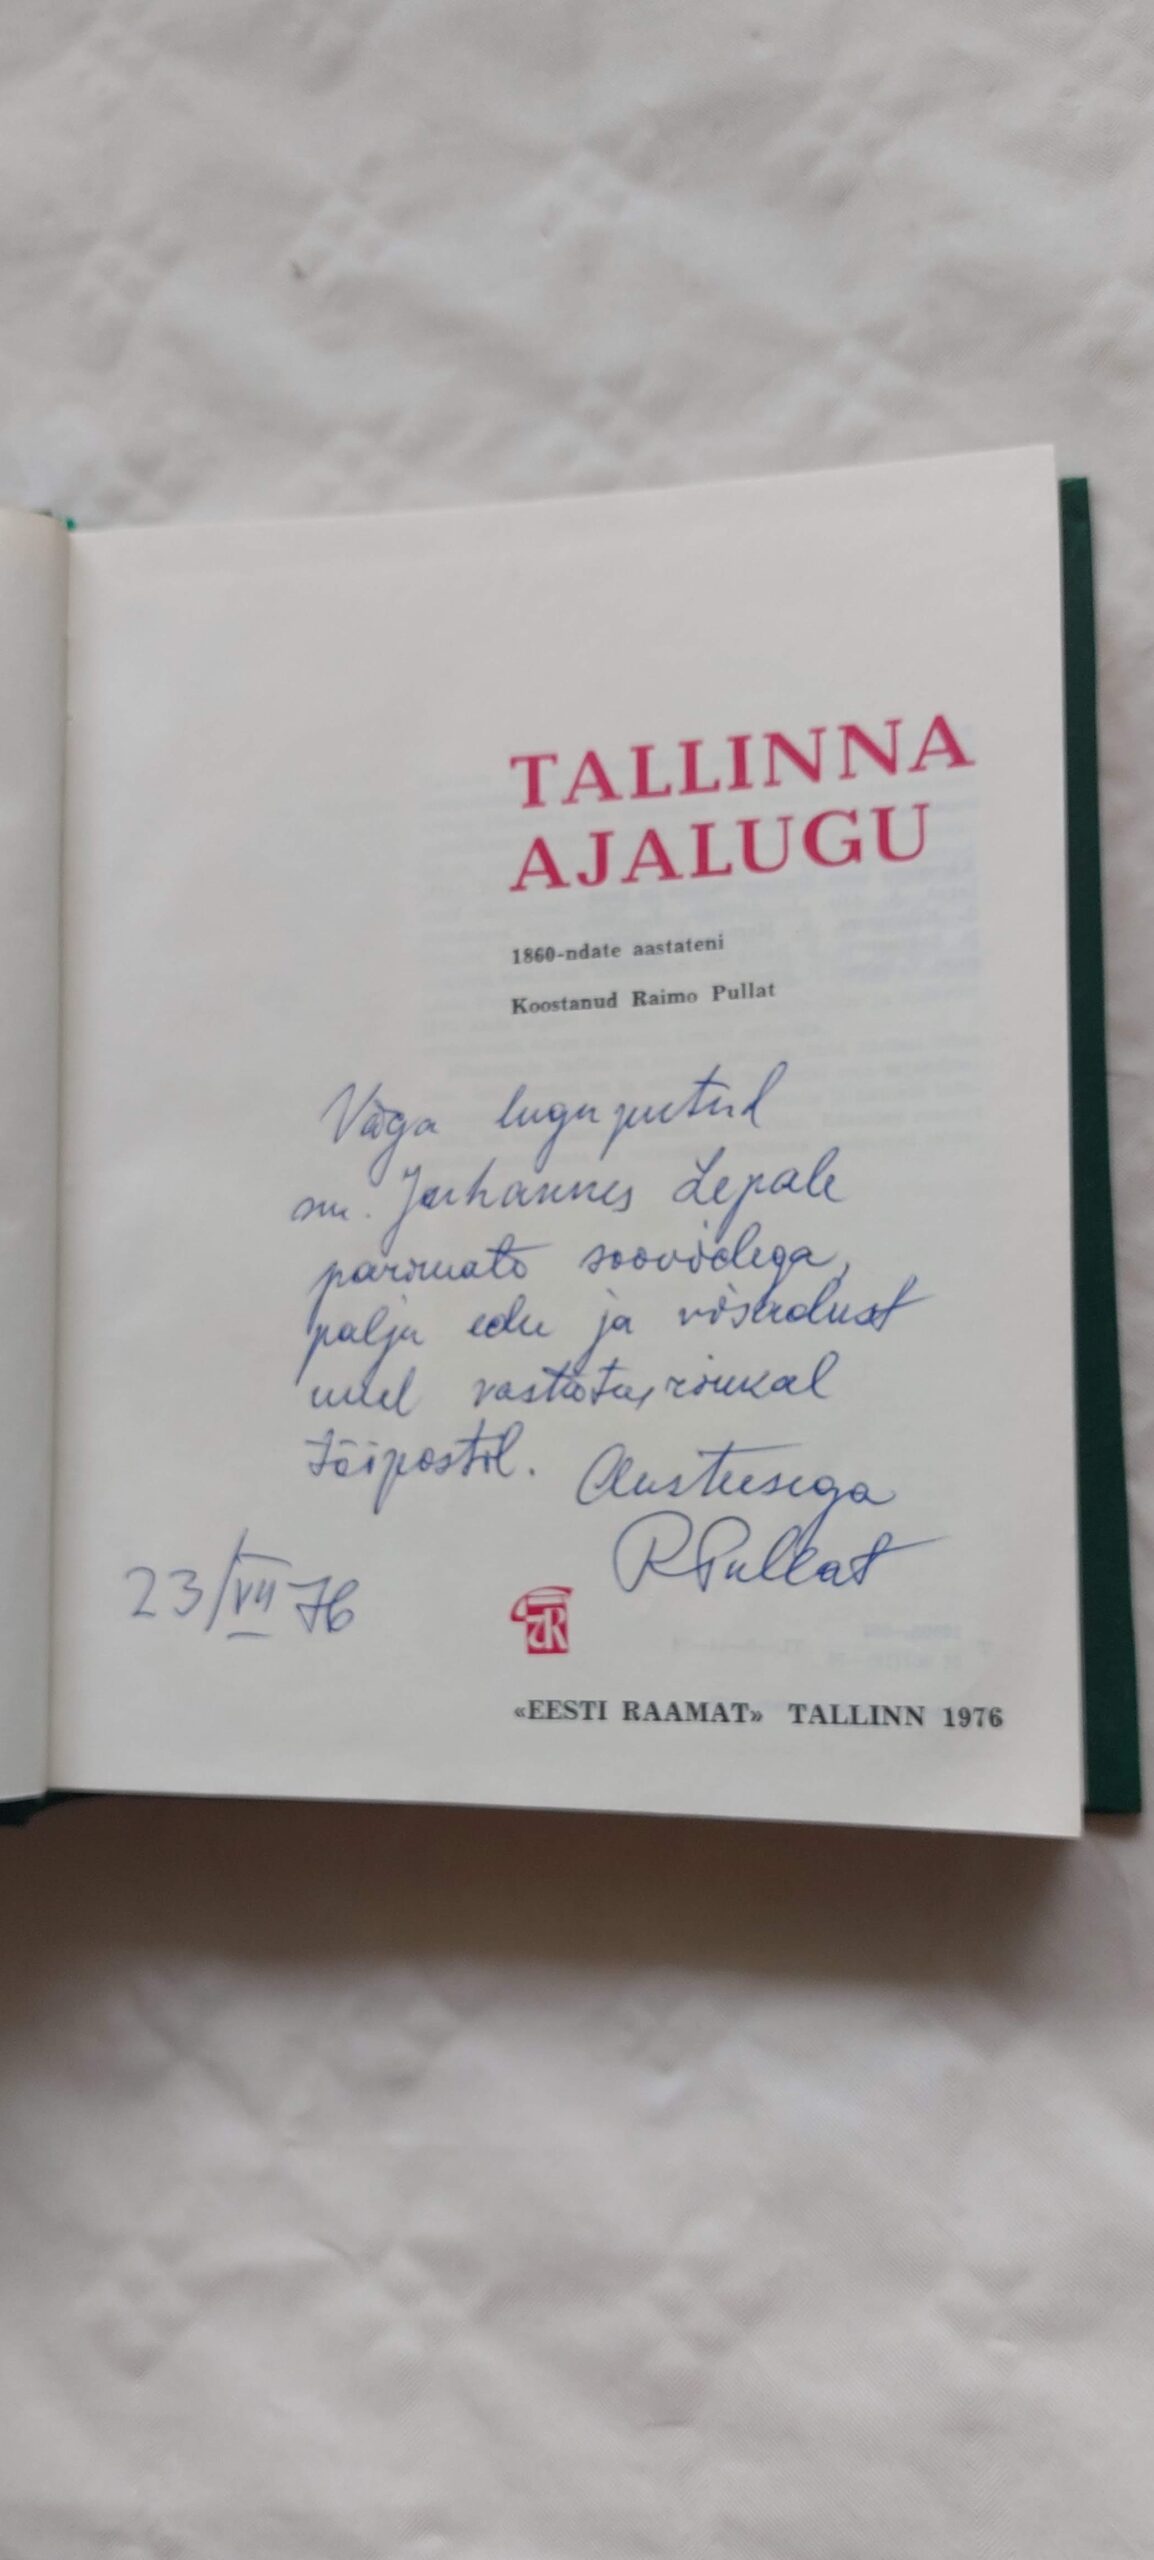 TALLINNA
AJALUGU
1860-ndate aastateni
Koostanud Raimo Pullat
Väga lugupeetud
sm. Johannes Lepale
parimate soovidega,
palju edu ja visadust
uuel vastutusrikkal
tööpostil.
Austusega
RPullat
23/VII 76
«EESTI RAAMAT» TALLINN 1976